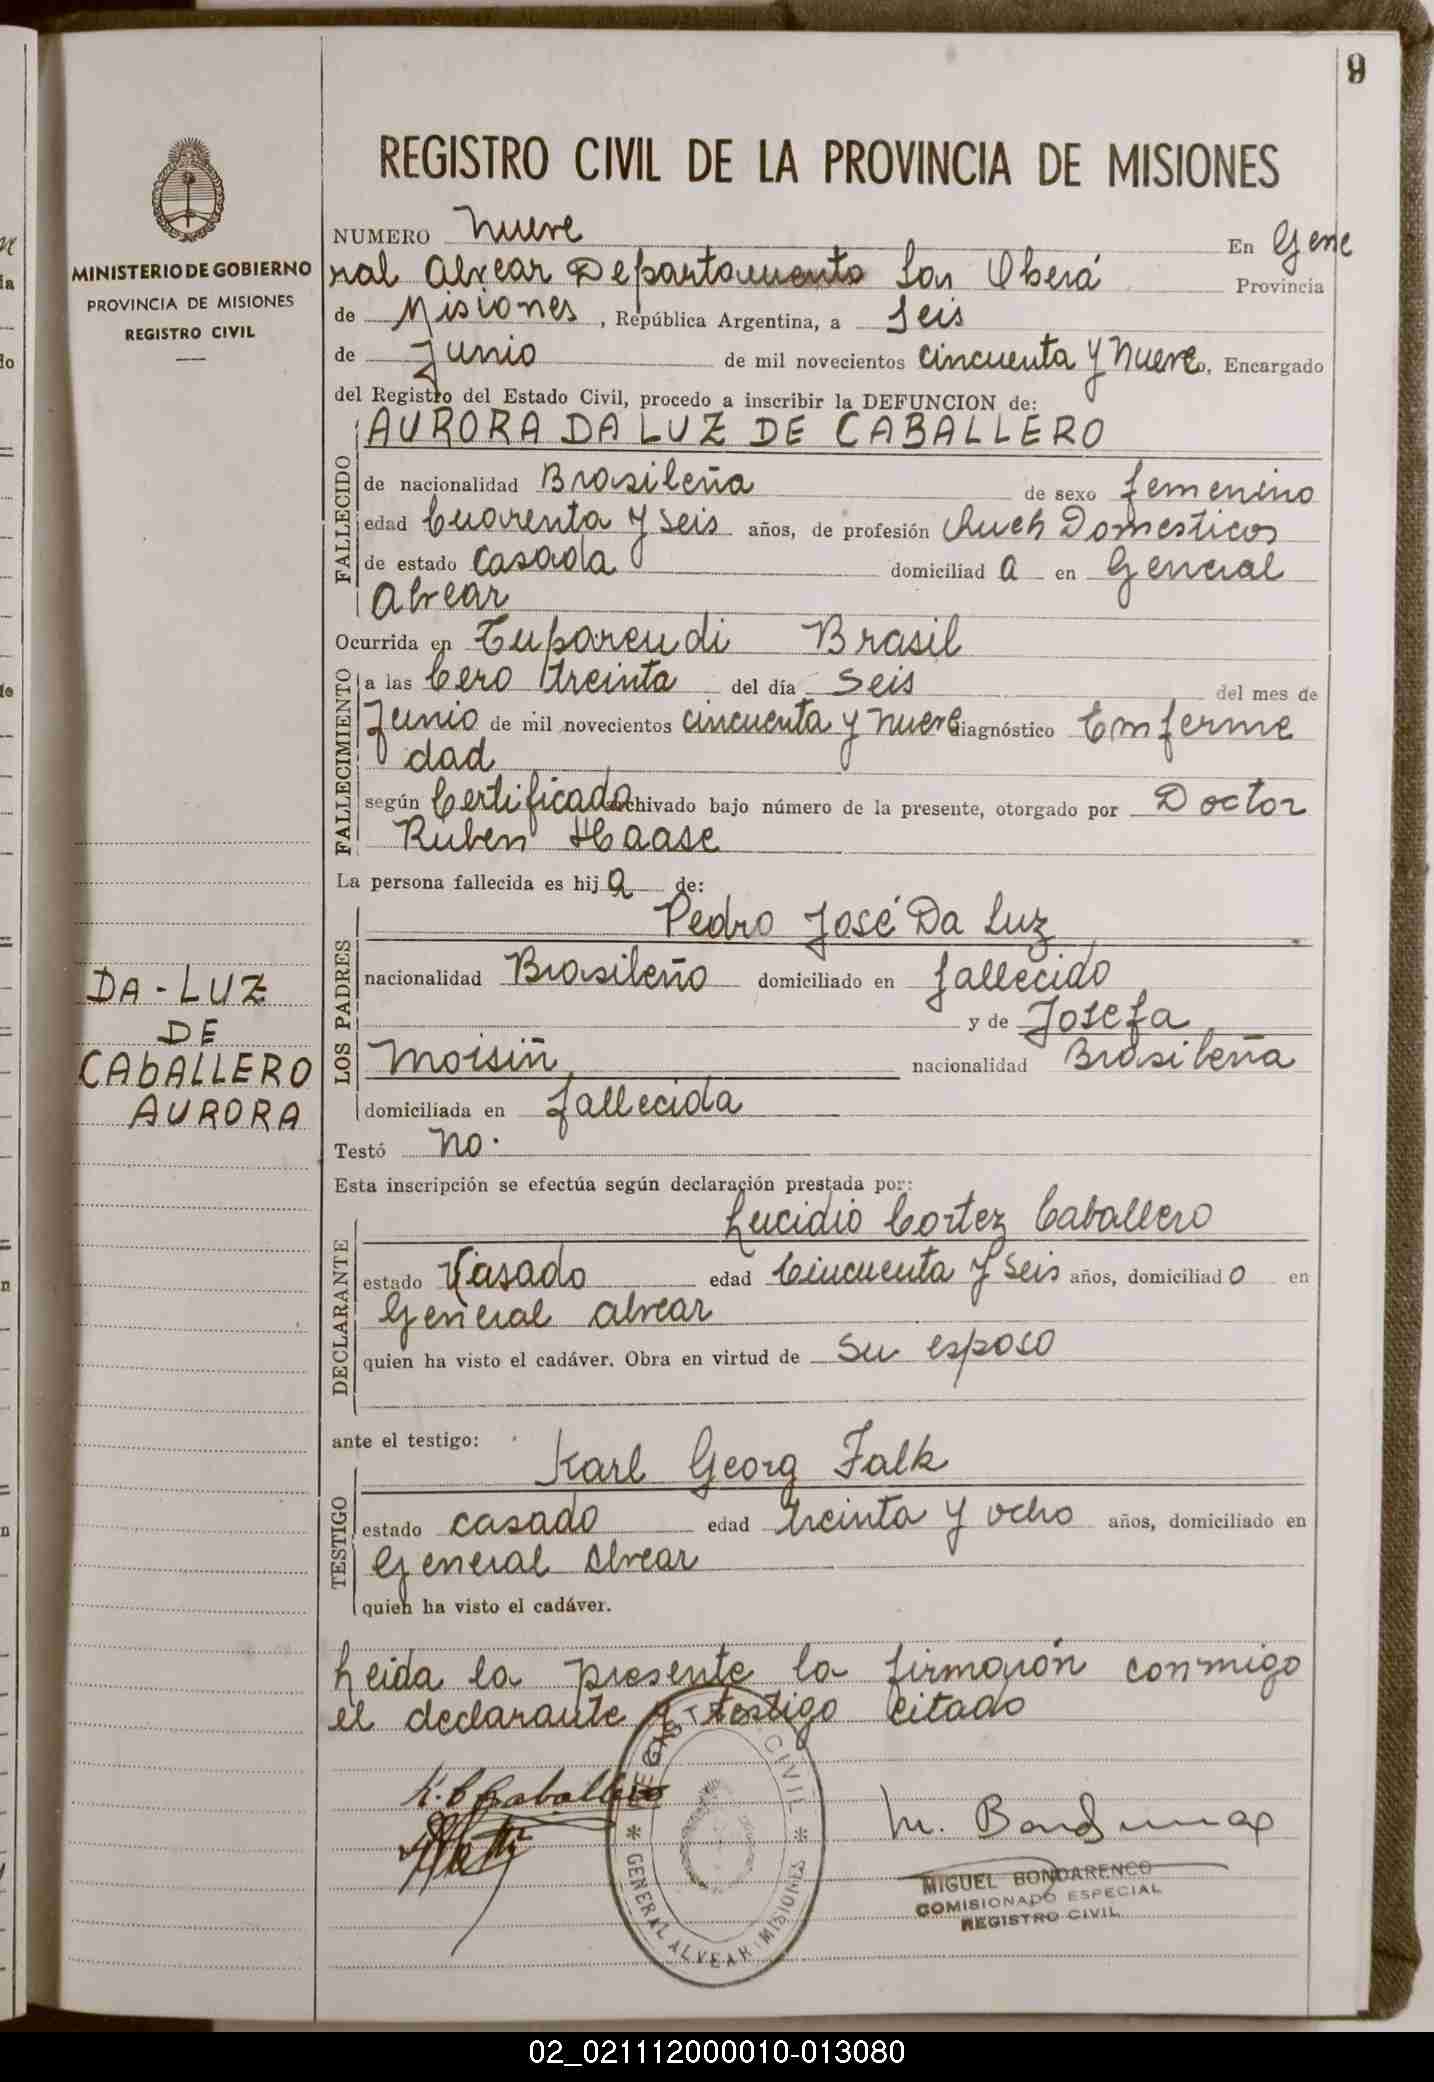 9
REGISTRO CIVIL DE LA PROVINCIA DE MISIONES
MINISTERIO DE GOBIERNO
PROVINCIA DE MISIONES
REGISTRO CIVIL
NUMERO Nueve En Gene
ral Alvear Departamento Oberá Provincia
de Misiones, República Argentina, a Seis
de Junio de mil novecientos cincuenta y nueve, Encargado
del Registro del Estado Civil, procedo a inscribir la DEFUNCION de:
AURORA DA LUZ DE CABALLERO
FALLECIDO
de nacionalidad Brasileña de sexo femenino
edad Cuarenta y seis años, de profesión Domesticos
de estado casada domiciliad a en General
Alvear
Ocurrida en Tuparendi Brasil
FALLECIMIENTO
a las Cero treinta del día Seis del mes de
Junio de mil novecientos cincuenta y nueve diagnóstico Emferme
dad
según Certificado archivado bajo número de la presente, otorgado por Doctor
Ruben Haase
La persona fallecida es hij a de:
LOS PADRES
Pedro José Da Luz
nacionalidad Brasileño domiciliado en fallecido
y de Josefa
Moisiñ nacionalidad Brasileña
domiciliada en fallecida
DA-LUZ
DE
CABALLERO
AURORA
Testó no.
Esta inscripción se efectúa según declaración prestada por:
DECLARANTE
Lucidio Cortez Caballero
estado Casado edad Cincuenta y seis años, domiciliad o en
General Alvear
quien ha visto el cadáver. Obra en virtud de su esposo
ante el testigo:
TESTIGO
Karl Georg Falk
estado casado edad treinta y ocho años, domiciliado en
General Alvear
quien ha visto el cadáver.
Leida la presente la firmarón conmigo
el declarante y testigo citado
L. C. Caballero
REGISTRO CIVIL
* GENERAL ALVEAR MISIONES *
MIGUEL BONDARENCO
COMISIONADO ESPECIAL
REGISTRO CIVIL
02_021112000010-013080